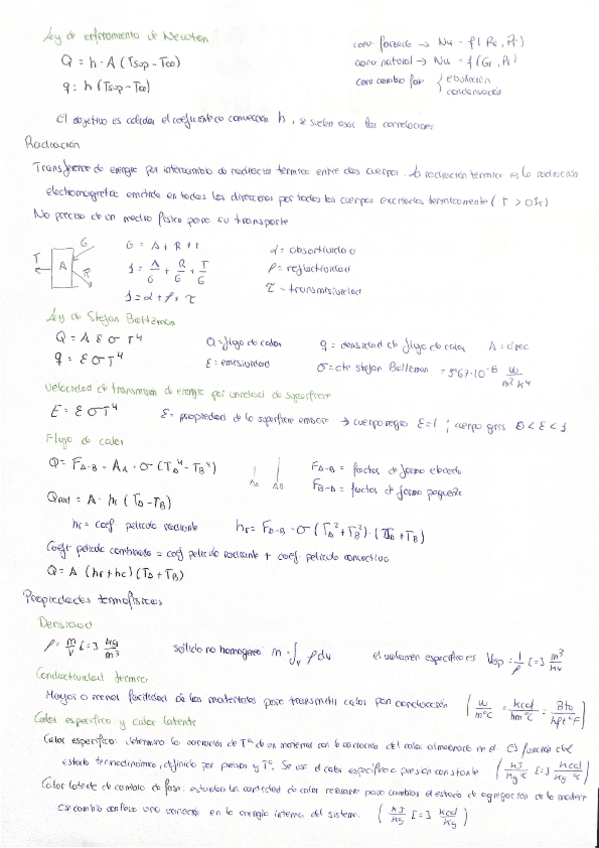 Ley de enfriamiento de Newton
Q = h · A (Tsup - T∞) conv forzada → Nu = f(Re, Pr)
q = h (Tsup - T∞) conv natural → Nu = f(Gr, Pr)
conv cambio fase { ebullición
condensación
El objetivo es calcular el coeficiente convección h, se suelen usar las correlaciones
Radiación
Transferencia de energía por intercambio de radiación térmica entre dos cuerpos. La radiación térmica es la radiación
electromagnética emitida en todas las direcciones por todos los cuerpos excitados térmicamente (T > 0K)
No precisa de un medio físico para su transporte
G T A R
G = A + R + T α = absortividad
1 = A/G + R/G + T/G ρ = reflectividad
1 = α + ρ + τ τ = transmisividad
Ley de Stefan Boltzman
Q = A ε σ T⁴ Q = flujo de calor q = densidad de flujo de calor A = área
q = ε σ T⁴ ε = emisividad σ = cte Stefan Boltzman = 5'67·10⁻⁸ W/m²K⁴
Velocidad de transmisión de energía por unidad de superficie
E = ε σ T⁴ ε = propiedad de la superficie emisora → cuerpo negro ε = 1 ; cuerpo gris 0 < ε < 1
Flujo de calor
Q = F_A-B · A_A · σ (T_A⁴ - T_B⁴) A_A A_B F_A-B = factor de forma
F_B-A = factor de forma
Qrad = A · hr (T_A - T_B)
hr = coef. película radiante hr = F_A-B · σ (T_A² + T_B²) · (T_A + T_B)
Coefte película combinado = coef película radiante + coef. película convectivo
Q = A (hr + hc) (T_A + T_B)
Propiedades termofísicas
Densidad
ρ = m/V [=] kg/m³ sólido no homogéneo m = ∫v ρ dv el volumen específico es Vesp = 1/ρ [=] m³/kg
Conductividad térmica
Mayor o menor facilidad de los materiales para transmitir calor por conducción (W/m°C = kcal/hm°C = Btu/hft°F)
Calor específico y calor latente
Calor específico: determina la variación de Tª de un material con la variación del calor almacenado en él. Es función del
estado termodinámico, definido por presión y Tª. Se usa el calor específico a presión constante (kJ/kg°C [=] kcal/kg°C)
Calor latente de cambio de fase: establece la cantidad de calor necesaria para cambiar el estado de agregación de la materia
ese cambio conlleva una variación en la energía interna del sistema. (kJ/kg [=] kcal/kg)